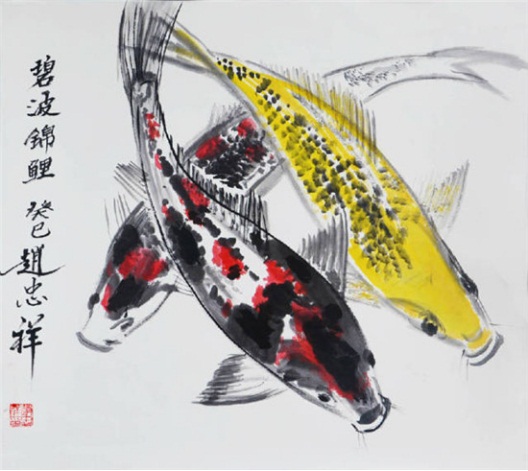 碧波錦鯉 癸巳 趙忠祥